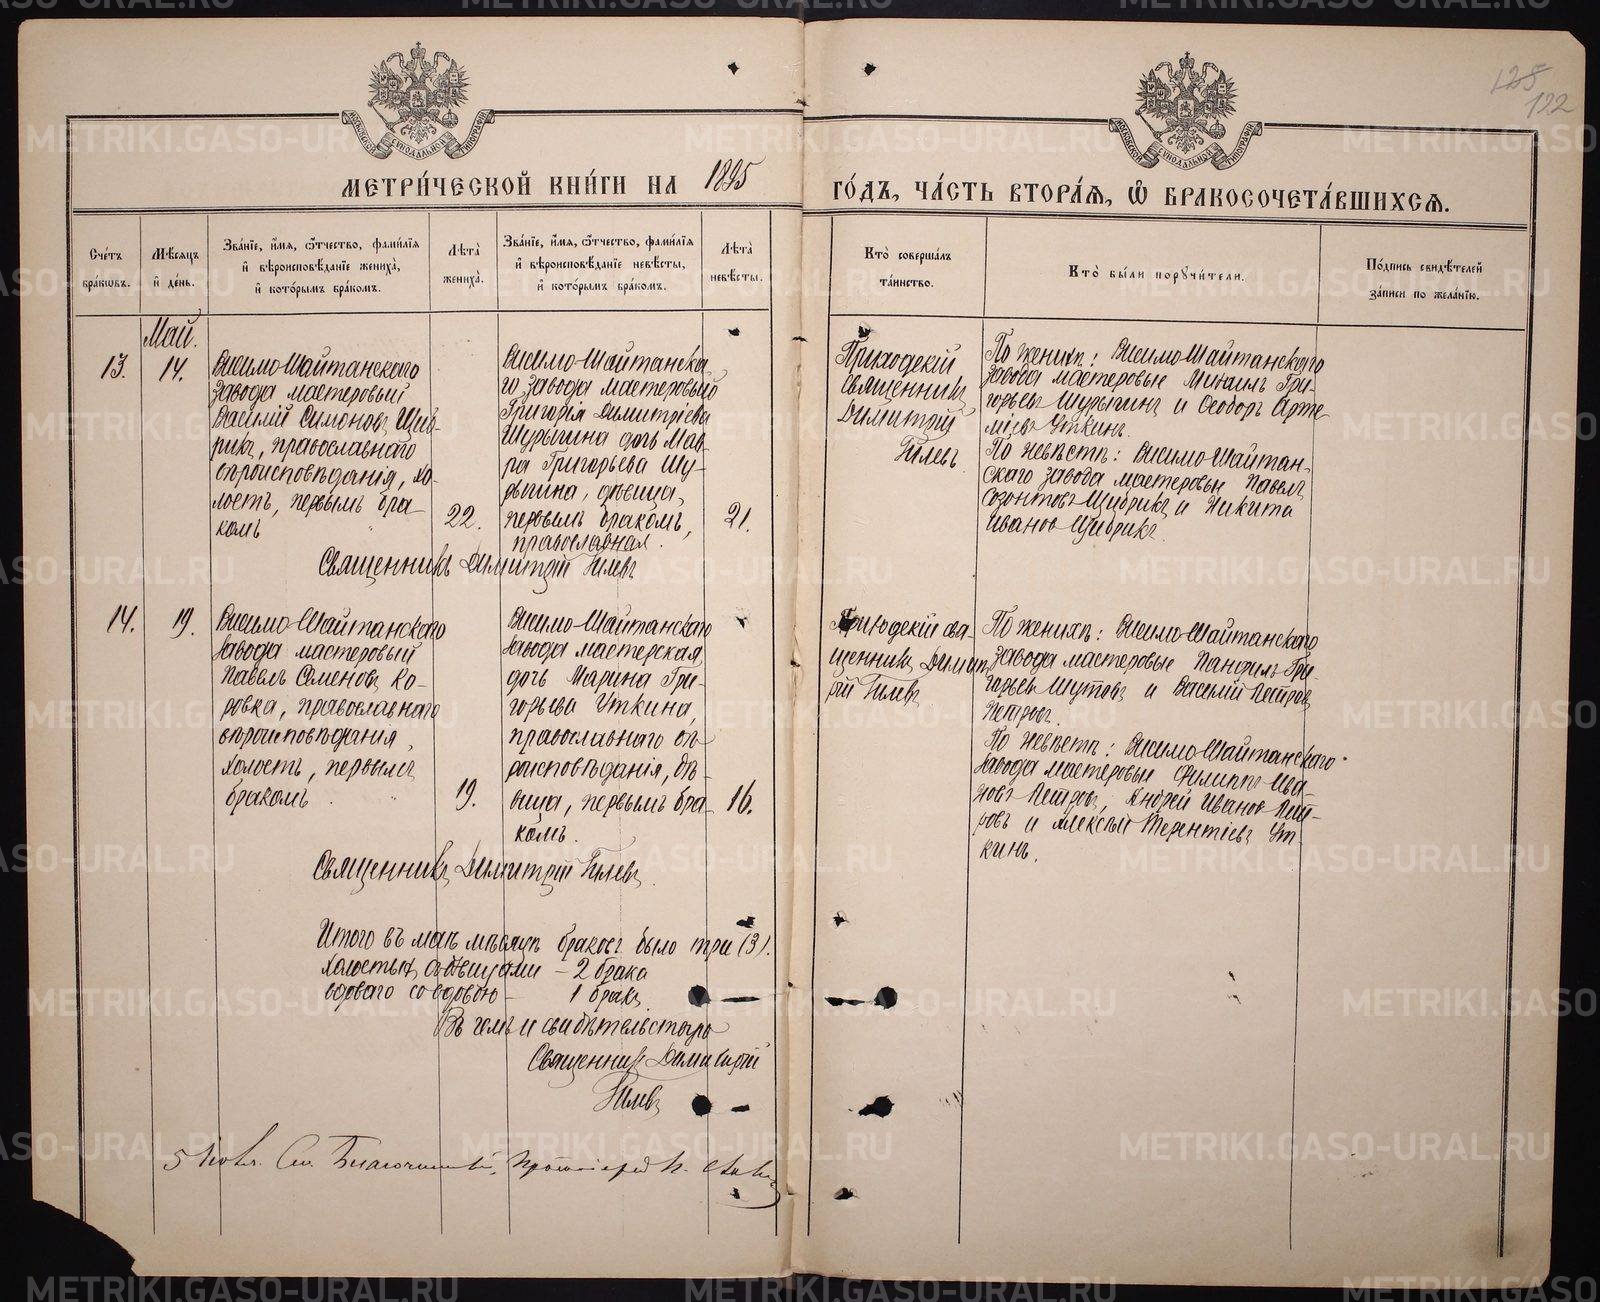 125
122
МОСКОВСКОЙ СѴНОДАЛЬНОЙ ТИПОГРАФІИ
МОСКОВСКОЙ СѴНОДАЛЬНОЙ ТИПОГРАФІИ
МЕТРИ́ЧЕСКОЙ КНИ́ГИ НА 1895 ГО́ДЪ, ЧА́СТЬ ВТОРА́Я, Ѡ҆ БРАКОСОЧЕТА́ВШИХСЯ.
Сче́тъ
бра́кѡвъ.
Мѣ́сяцъ
и҆ де́нь.
Зва́нїе, и҆́мя, ѻ҆́тчество, фами́лїя
и҆ вѣроисповѣ́данїе жениха̀,
и҆ кото́рымъ бра́комъ.
Лѣта̀
жениха̀.
Зва́нїе, и҆́мя, ѻ҆́тчество, фами́лїя
и҆ вѣроисповѣ́данїе невѣ́сты,
и҆ кото́рымъ бра́комъ.
Лѣта̀
невѣ́сты.
Кто̀ соверша́лъ
та́инство.
Кто̀ бы́ли порꙋчи́тели.
По́дпись свидѣ́телей
за́писи по жела́нїю.
Май.
13.
14.
Висимо-Шайтанского
завода мастеровый
Василій Симоновъ Щиб-
рикъ, православнаго
вѣроисповѣданія, хо-
лостъ, первымъ бра-
комъ
22.
Висимо-Шайтанска-
го завода мастеровый
Григорія Димитріева
Шурыгина дочь Мав-
ра Григорьева Шу-
рыгина, дѣвица,
первымъ бракомъ,
православная.
21.
Приходскій
священникъ
Димитрій
Гилевъ
По женихѣ: Висимо-Шайтанскаго
завода мастеровые Михаилъ Гри-
горьевъ Шурыгинъ и Ѳеодоръ Арте-
міевъ Уткинъ.
По невѣстѣ: Висимо-Шайтан-
скаго завода мастеровые Павелъ
Созонтовъ Щибрикъ и Никита
Ивановъ Щибрикъ.
Священникъ Димитрій Гилевъ
14.
19.
Висимо-Шайтанскаго
завода мастеровый
Павелъ Семеновъ Ко-
ровка, православнаго
вѣроисповѣданія,
холостъ, первымъ
бракомъ
19.
Висимо-Шайтанскаго
завода мастерская
дочь Марина Гри-
горьева Уткина,
православнаго вѣ-
роисповѣданія, дѣ-
вица, первымъ бра-
комъ.
16.
Приходскій свя-
щенникъ Димит-
рій Гилевъ
По женихѣ: Висимо-Шайтанскаго
завода мастеровые Панфилъ Гри-
горьевъ Шутовъ и Василій Петровъ
Петровъ.
По невѣстѣ: Висимо-Шайтанскаго
завода мастеровые Филиппъ Ива-
новъ Петровъ, Андрей Ивановъ Пет-
ровъ и Алексѣй Терентіевъ Ут-
кинъ.
Священникъ Димитрій Гилевъ.
Итого въ маѣ мѣсяцѣ браковъ было три (3).
холостыхъ съ дѣвицами – 2 брака
вдоваго со вдовою – 1 бракъ.
Въ чемъ и свидѣтельствую
Священникъ Димитрій
Гилевъ
Благочинный, Протоіерей
METRIKI.GASO-URAL.RU